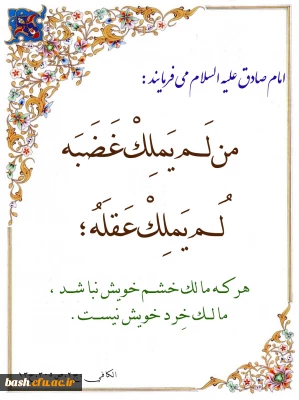 امام صادق علیه السلام می فرمایند :
من لَـم یَملِكْ غَضَبَه
لُـم یَملِكْ عَقلَهُ؛
هر که مالك خشم خویش نباشد ،
مالك خِرد خویش نیست .
الکافی
bash.cfu.ac.ir